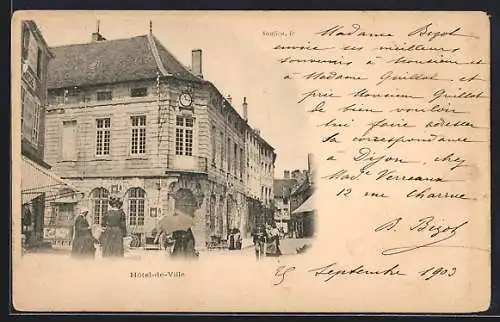 Madame Bizot
envoie ses meilleurs
souvenirs à Monsieur et
à Madame Guillot et
prie Monsieur Guillot
de bien vouloir
lui faire adresser
sa correspondance
à Dijon, chez
Mad.e Verreaux
12 rue Charrue
B. Bizot
Hôtel-de-Ville
25 Septembre 1903